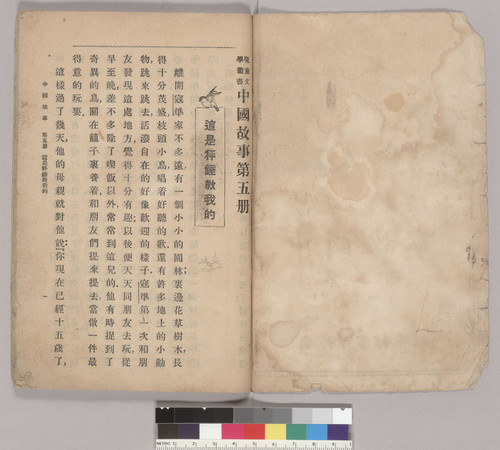 兒童文學叢書
中國故事第五册
這是秤錘教我的
離開寇準家不多遠有一個小小的園林；裏邊花草樹木，長
得十分茂盛枝頭小鳥唱着好聽的歌，還有許多地上的小動
物，跳來跳去活潑自在的，好像歡迎的樣子。寇準第一次和朋
友發現這處地方，覺得十分有趣；以後便天天同朋友去玩，從
早至晚，差不多除了喫飯以外，常常到這兒的。他有時捉到了
奇異的鳥，關在籠子裏養着，和朋友們提來提去當做一件最
得意的玩要。
這樣過了幾天，他的母親就對他說：『你現在已經十五歲了，
中國故事 第五册 這是秤錘教我的
一